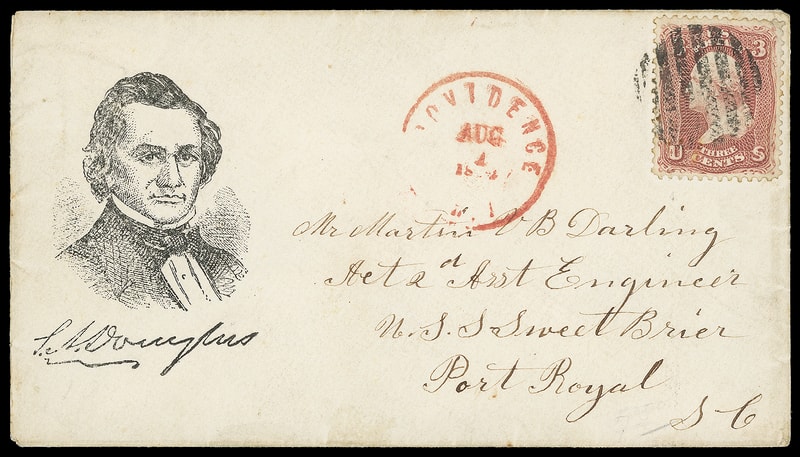 PROVIDENCE
AUG
1
R.I.
3
THREE
CENTS
U S
S. A. Douglas
Mr Martin V B Darling
Act 2d Asst Engineer
U. S. S Sweet Brier
Port Royal
S C